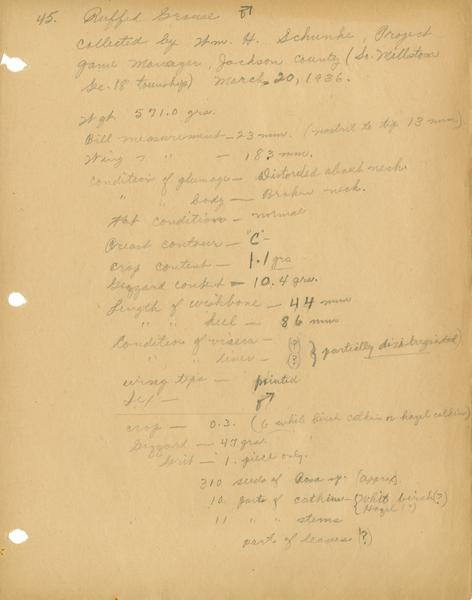 45. Ruffed Grouse ♂
Collected by Wm. H. Schunke, Project
Game Manager, Jackson County (So. Millston
Sec. 18 township) March 20, 1936.
Wght 571.0 grs.
Bill measurement - 23 mm. (nostril to tip 13 mm)
Wing " " - 183 mm.
Condition of plumage - Distorded about neck.
" " body - Broken neck.
Fat condition - normal
Breast contour - "C" -
Crop content - 1.1 grs
Gizzard content - 10.4 grs.
Length of wishbone - 44 mm
" " keel - 86 mm
Condition of vicera - (?)
" " liver - (?) } partially disintegrated)
wing tips - pointed
Sex - ♂
crop - 0.3. (6 white birch catkins or hazel catkins)
Gizzard - 47 grs.
Grit - 1. piece only.
310 seeds of Rosa sp. (approx)
10 parts of catkins - {white birch (?)
{Hazel (?)
11 " " stems
parts of leaves (?)